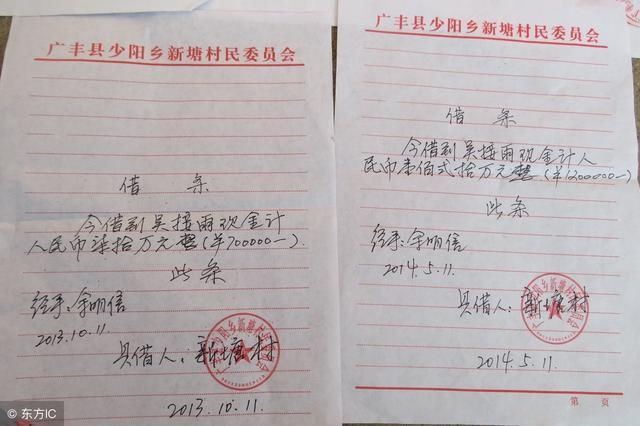 广丰县少阳乡新塘村民委员会
借 条
今借到吴接雨现金计
人民币柒拾万元整(￥700000-).
此条
经手:余明信
2013.10.11.
具借人:新塘村
2013.10.11.
广丰县少阳乡新塘村民委员会
借 条
今借到吴接雨现金计人
民币壹佰弍拾万元整(￥1200000-)
此条
经手:余明信
2014.5.11.
具借人:新塘村
2014.5.11.
第 页
© 东方IC